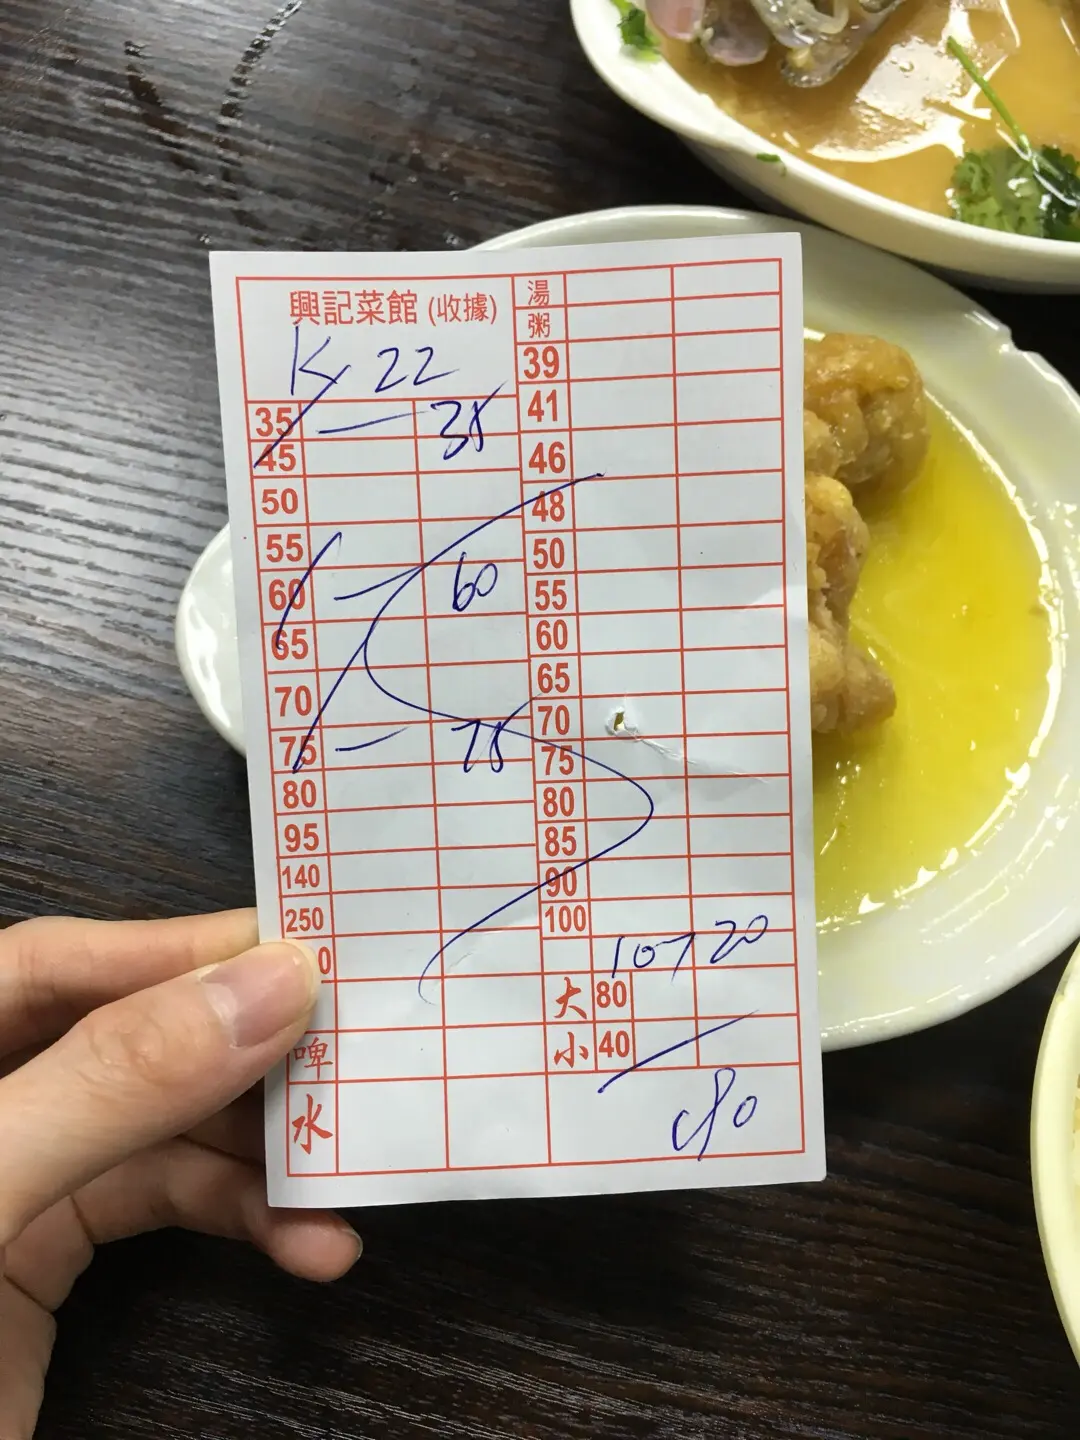 興記菜館 (收據)
K 22
35 — 35
45
50
55
60 — 60
65
70
75 — 75
80
95
140
250
0
啤
水
湯
粥
39
41
46
48
50
55
60
65
70
75
80
85
90
100
20
大 80
小 40